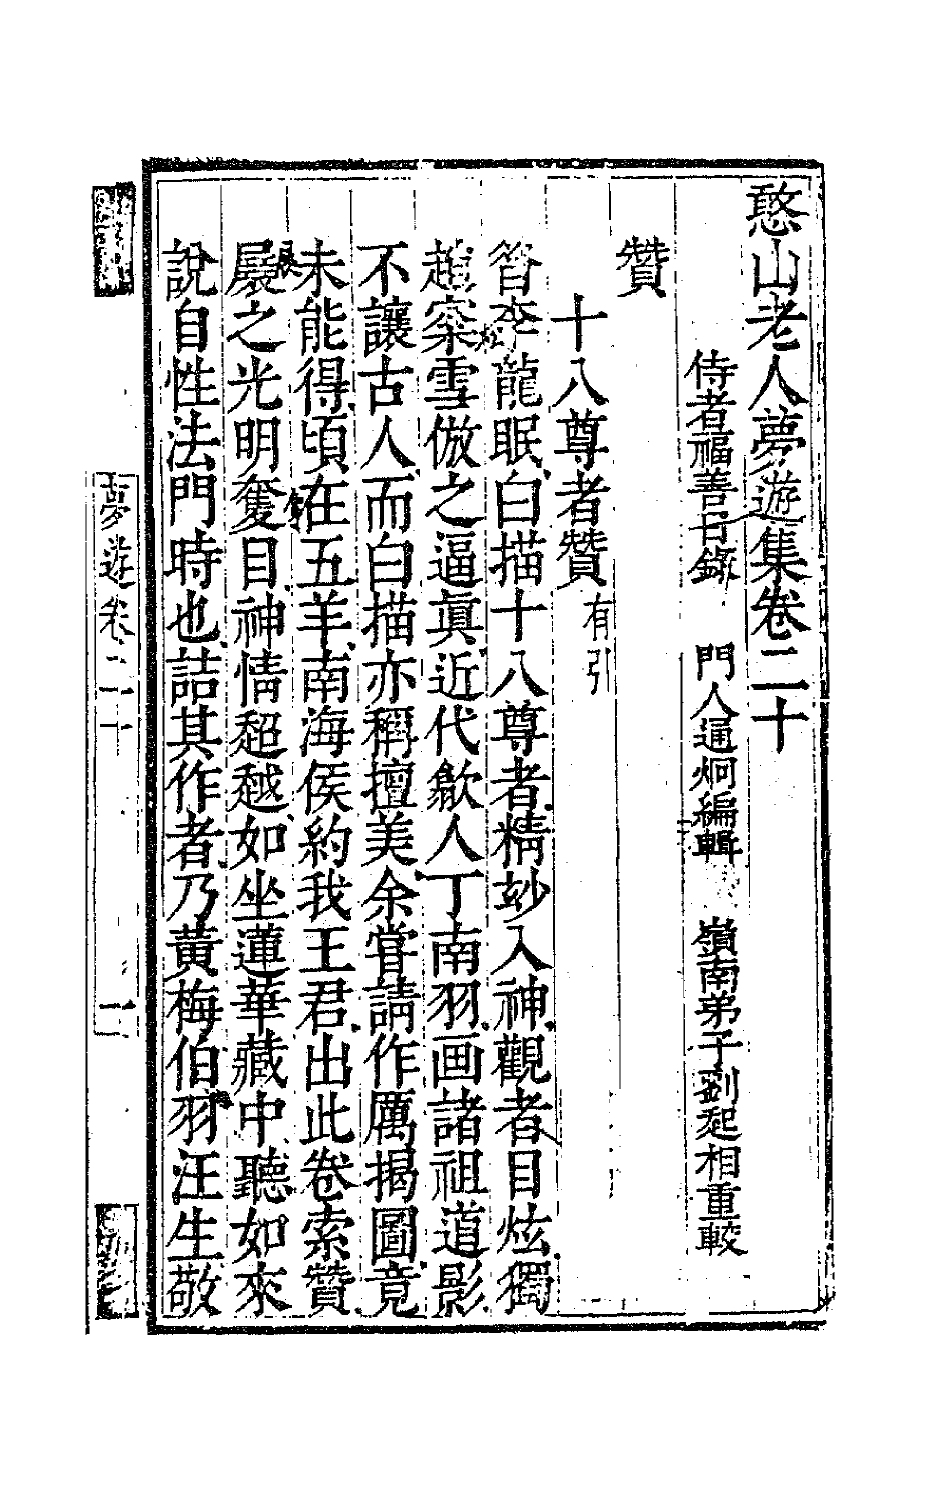 憨山老人夢遊集卷二十
侍者福善日錄 門人通炯編輯 嶺南弟子劉起相重較
贊
十八尊者贊有引
昔李龍眠白描十八尊者精玅入神觀者目炫獨
趙寀雪倣之逼真近代歙人丁南羽画諸祖道影
不讓古人而白描亦稱擅美余嘗請作厲揭圖竟
未能得頃在五羊南海侯約我王君出此卷索贊
展之光明奪目神情超越如坐蓮華藏中聽如來
說自性法門時也詰其作者乃黃梅伯羽汪生敬
夢遊卷二十 一